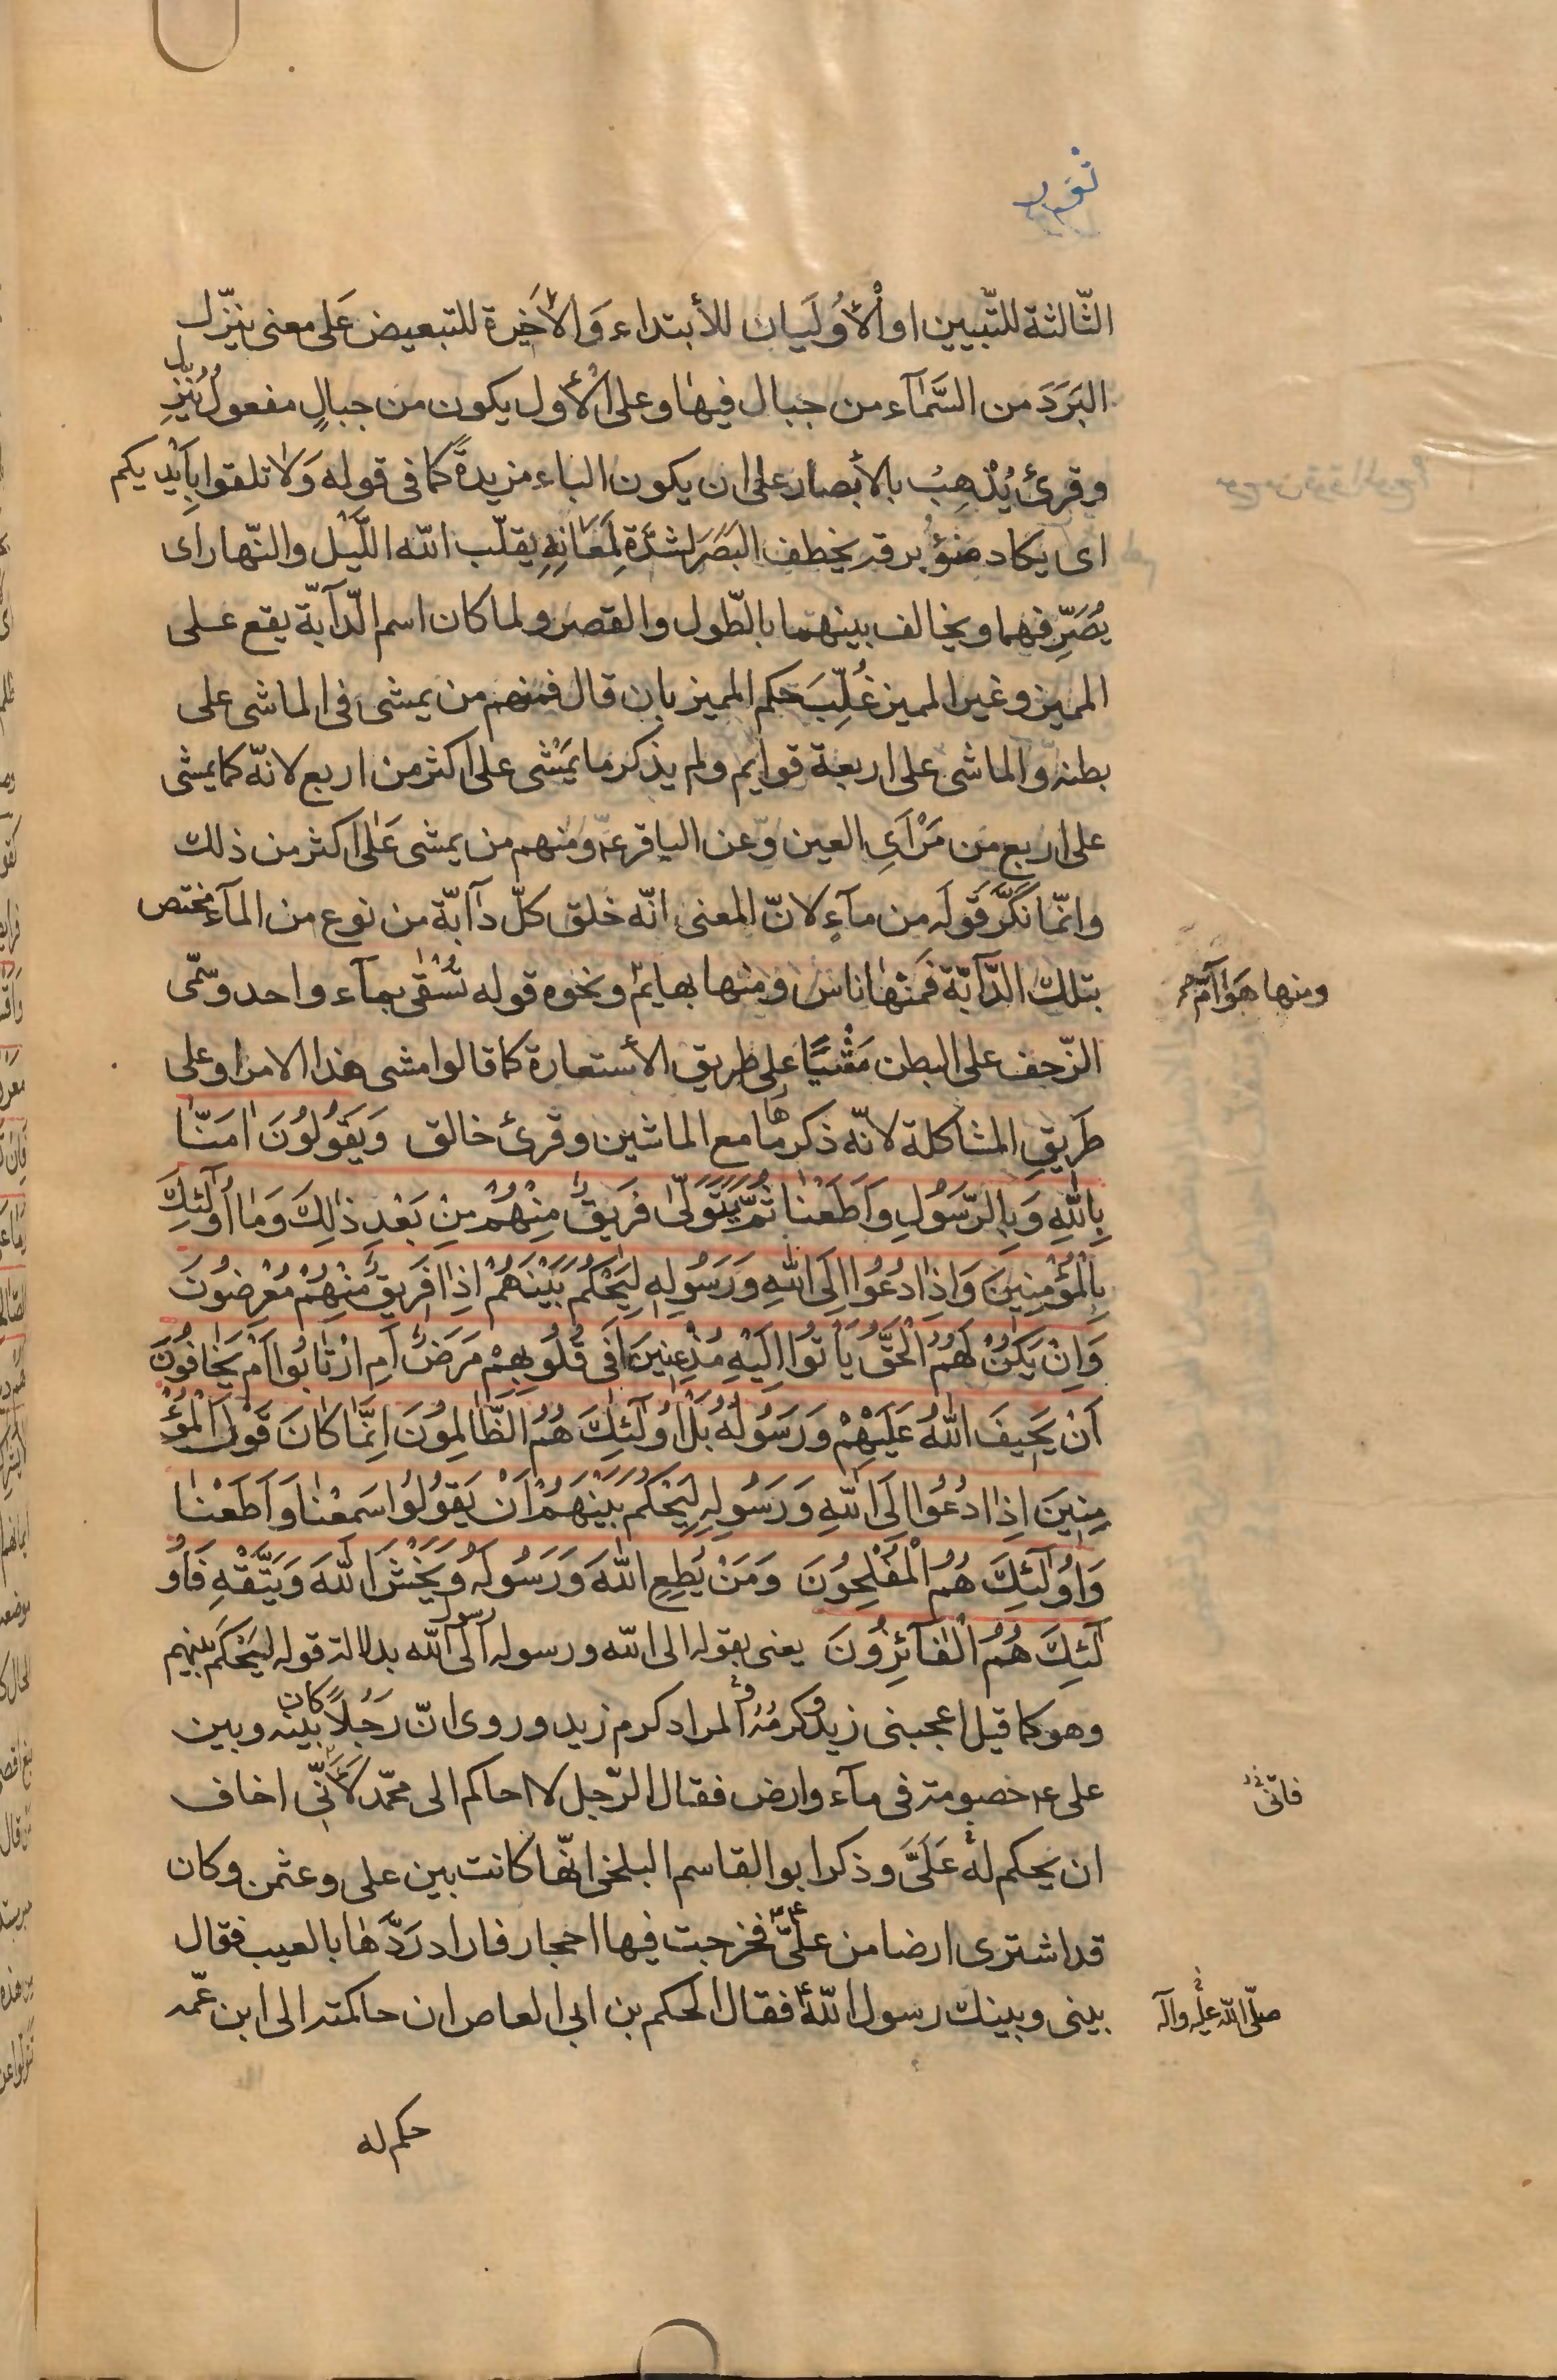 نور
الثّالثة للتّبيين او الأُولَيان للأبتداء وَالأَخَيرة للتبعيض عَلى معنى ينزّل
البَرَدَ من السَّمآء من جبال فيهٰا وعلى الأوّل يكون من جبالٍ مفعولُ يُنَزِّل
وقرئ يُذْهِبُ بالأبصار على ان يكون الباء مزيدةً كما فى قوله وَلا تلقوا بِاَيْديكم
اى يكاد ضوؤُ برقه يخطف البَصَرَ لشدَّة لَمَعَانِهِ يقلّب الله اللَّيْل والنّهار اى
يُصَرِّفهما ويخالف بينهما بالطّول والقصر ولما كان اسم الدّآبّة يقع على
المميز وغير المميز غُلِّبَ حكم المميز بان قال فمنهم من يمشى فى الماشى على
بطنه والماشى على اربعة قوايم ولم يذكر ما يَمْشى على اكثر من اربع لانّه كما يمشى
على اربع من مَرْاَىِ العين وَعن الباقر عۤ ومنهم من يمشى عَلٰى اكثر من ذلك
وانّما نَكَّرَ قَولَه من مآءٍ لانّ المعنى انّه خلق كلّ دآبّة من نوع من المآء مختص
بتلك الدَّآبّة فَمنْهٰا ناسٌ ومنها بهايم ونحوه قوله تُسْقٰى بمآء واحد وسَمّى
ومنها هَوٰآمّ
الزّحف على البطن مَشْيًا على طريق الأستعارة كما قالوا مشى هٰذا الامر او على
طَريقِ المشاكلة لانّه ذكرها مع الماشين وقرئ خالق وَيَقُولُونَ اٰمَنّٰا
بِاللهِ وَبِالرَّسُولِ وَاَطَعْنٰا ثُمَّ يَتَوَلّىٰ فَريقٌ مِنْهُمْ مِنْ بَعْدِ ذٰلِكَ وَمٰا اُولٰئِكَ
بِالْمُؤْمِنينَ وَاِذٰا دُعُوا اِلَى اللهِ وَرَسُولِهِ لِيَحْكُمَ بَيْنَهُمْ اِذٰا فَريقٌ مِنْهُمْ مُعْرِضُونَ
وَاِنْ يَكُنْ لَهُمُ الْحَقُّ يَأْتُوا اِلَيْهِ مُذْعِنينَ اَفى قُلُوبِهِمْ مَرَضٌ اَمِ ارْتٰابُوا اَمْ يَخٰافُونَ
اَنْ يَحيفَ اللهُ عَلَيْهِمْ وَرَسُولُهُ بَلْ اُولٰئِكَ هُمُ الظّٰالِمُونَ اِنَّمٰا كٰانَ قَوْلَ الْمُؤْ
مِنينَ اِذٰا دُعُوا اِلَى اللهِ وَرَسُولِهِ لِيَحْكُمَ بَيْنَهُمْ اَنْ يَقُولُوا سَمِعْنٰا وَاَطَعْنٰا
وَاُولٰئِكَ هُمُ الْمُفْلِحُونَ وَمَنْ يُطِعِ اللهَ وَرَسُولَهُ وَيَخْشَ اللهَ وَيَتَّقْهِ فَاُو
لٰئِكَ هُمُ الْفٰآئِزُونَ يعنى بقوله الى الله ورسوله الى رسول الله بدلالة قوله لِيَحْكُم بينهم
وهو كما قيل اعجبنى زيدٌ وكرمُهُ والمراد كرم زيد وروى انّ رَجُلاً كان بينه وبين
على عۤ خصومة فى مآء وارض فقال الرّجل لا احاكم الى محمّد لأَنّى اخاف
فانّى
ان يحكم له عَلَىَّ وذكر ابو القاسم البلخى انّها كانت بين على وعثمن وكان
قد اشترى ارضا من علىّ عۤ فخرجت فيها احجار فاراد رَدَّهٰا بالعيب فقال
بينى وبينك رسول الله فقال الحكم بن ابى العاص ان حاكمته الى ابن عمّه
صلّى الله عليه وآله
حكم له